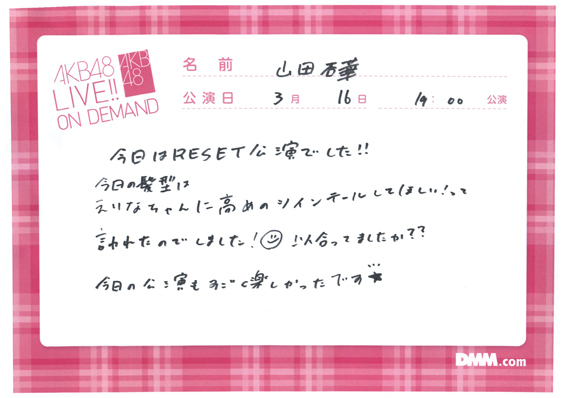 AKB48
LIVE!!
ON DEMAND
AKB
48
名前 山田 杏華
公演日 3月 16日 19:00 公演
今日はRESET公演でした!!
今日の髪型は
えりなちゃんに高めのツインテールしてほしい!って
言われたのでしました! 似合ってましたか??
今日の公演もすごく楽しかったです★
DMM.com